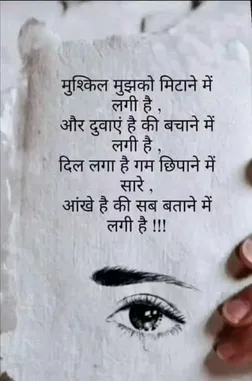 मुश्किल मुझको मिटाने में
लगी है ,
और दुवाएं है की बचाने में
लगी है ,
दिल लगा है गम छिपाने में
सारे ,
आंखे है की सब बताने में
लगी है !!!